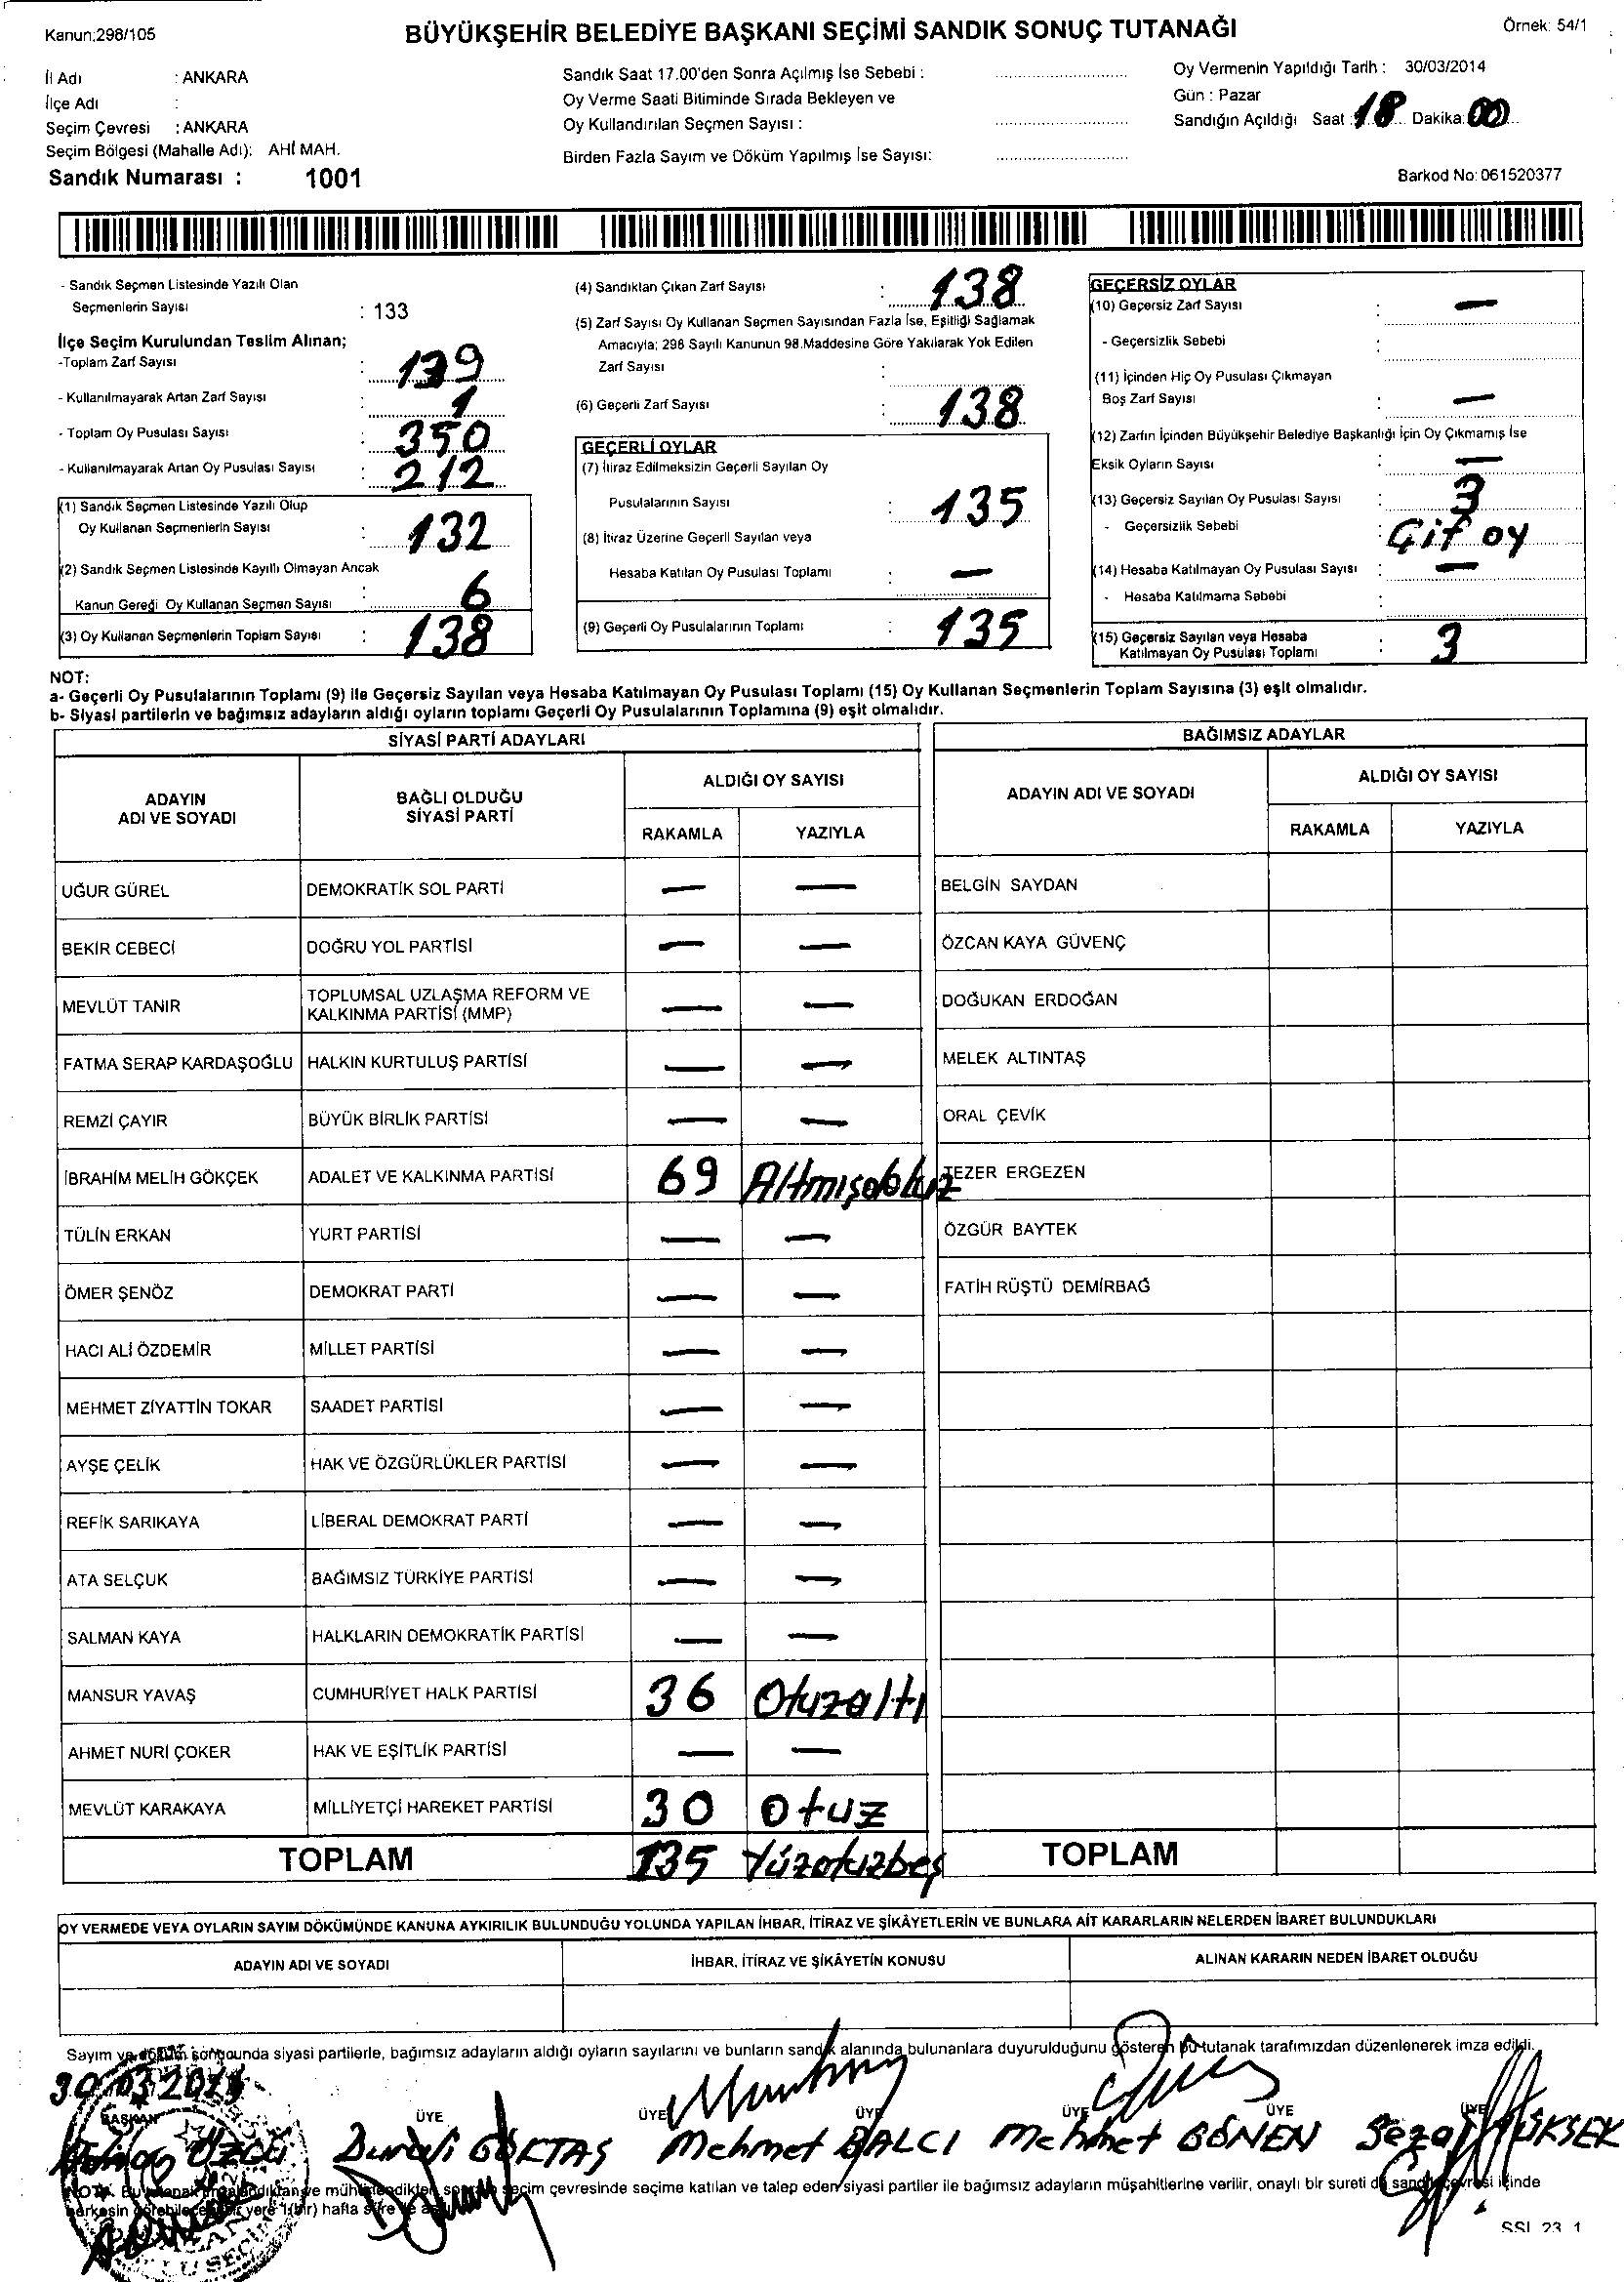 Kanun:298/105
BÜYÜKŞEHİR BELEDİYE BAŞKANI SEÇİMİ SANDIK SONUÇ TUTANAĞI
Örnek: 54/1
İl Adı : ANKARA
İlçe Adı :
Seçim Çevresi : ANKARA
Seçim Bölgesi (Mahalle Adı): AHİ MAH.
Sandık Numarası : 1001
Sandık Saat 17.00'den Sonra Açılmış İse Sebebi :
Oy Verme Saati Bitiminde Sırada Bekleyen ve
Oy Kullandırılan Seçmen Sayısı :
Birden Fazla Sayım ve Döküm Yapılmış İse Sayısı:
Oy Vermenin Yapıldığı Tarih : 30/03/2014
Gün : Pazar
Sandığın Açıldığı Saat : 18 Dakika: 00
Barkod No: 061520377
- Sandık Seçmen Listesinde Yazılı Olan
Seçmenlerin Sayısı : 133
İlçe Seçim Kurulundan Teslim Alınan;
-Toplam Zarf Sayısı : 139
- Kullanılmayarak Artan Zarf Sayısı : 1
- Toplam Oy Pusulası Sayısı : 350
- Kullanılmayarak Artan Oy Pusulası Sayısı : 212
(1) Sandık Seçmen Listesinde Yazılı Olup
Oy Kullanan Seçmenlerin Sayısı : 132
(2) Sandık Seçmen Listesinde Kayıtlı Olmayan Ancak
Kanun Gereği Oy Kullanan Seçmen Sayısı : 6
(3) Oy Kullanan Seçmenlerin Toplam Sayısı : 138
(4) Sandıktan Çıkan Zarf Sayısı : 138
(5) Zarf Sayısı Oy Kullanan Seçmen Sayısından Fazla İse, Eşitliği Sağlamak
Amacıyla; 298 Sayılı Kanunun 98.Maddesine Göre Yakılarak Yok Edilen
Zarf Sayısı :
(6) Geçerli Zarf Sayısı : 138
GEÇERLİ OYLAR
(7) İtiraz Edilmeksizin Geçerli Sayılan Oy
Pusulalarının Sayısı : 135
(8) İtiraz Üzerine Geçerli Sayılan veya
Hesaba Katılan Oy Pusulası Toplamı : —
(9) Geçerli Oy Pusulalarının Toplamı : 135
GEÇERSİZ OYLAR
(10) Geçersiz Zarf Sayısı : —
- Geçersizlik Sebebi :
(11) İçinden Hiç Oy Pusulası Çıkmayan
Boş Zarf Sayısı : —
(12) Zarfın İçinden Büyükşehir Belediye Başkanlığı İçin Oy Çıkmamış İse
Eksik Oyların Sayısı : —
(13) Geçersiz Sayılan Oy Pusulası Sayısı : 3
- Geçersizlik Sebebi : Çift oy
(14) Hesaba Katılmayan Oy Pusulası Sayısı : —
- Hesaba Katılmama Sebebi :
(15) Geçersiz Sayılan veya Hesaba
Katılmayan Oy Pusulası Toplamı : 3
NOT:
a- Geçerli Oy Pusulalarının Toplamı (9) ile Geçersiz Sayılan veya Hesaba Katılmayan Oy Pusulası Toplamı (15) Oy Kullanan Seçmenlerin Toplam Sayısına (3) eşit olmalıdır.
b- Siyasi partilerin ve bağımsız adayların aldığı oyların toplamı Geçerli Oy Pusulalarının Toplamına (9) eşit olmalıdır.
SİYASİ PARTİ ADAYLARI
ADAYIN
ADI VE SOYADI
BAĞLI OLDUĞU
SİYASİ PARTİ
ALDIĞI OY SAYISI
RAKAMLA YAZIYLA
UĞUR GÜREL DEMOKRATİK SOL PARTİ — —
BEKİR CEBECİ DOĞRU YOL PARTİSİ — —
MEVLÜT TANIR TOPLUMSAL UZLAŞMA REFORM VE
KALKINMA PARTİSİ (MMP) — —
FATMA SERAP KARDAŞOĞLU HALKIN KURTULUŞ PARTİSİ — —
REMZİ ÇAYIR BÜYÜK BİRLİK PARTİSİ — —
İBRAHİM MELİH GÖKÇEK ADALET VE KALKINMA PARTİSİ 69 Altmışdokuz
TÜLİN ERKAN YURT PARTİSİ — —
ÖMER ŞENÖZ DEMOKRAT PARTİ — —
HACI ALİ ÖZDEMİR MİLLET PARTİSİ — —
MEHMET ZİYATTİN TOKAR SAADET PARTİSİ — —
AYŞE ÇELİK HAK VE ÖZGÜRLÜKLER PARTİSİ — —
REFİK SARIKAYA LİBERAL DEMOKRAT PARTİ — —
ATA SELÇUK BAĞIMSIZ TÜRKİYE PARTİSİ — —
SALMAN KAYA HALKLARIN DEMOKRATİK PARTİSİ — —
MANSUR YAVAŞ CUMHURİYET HALK PARTİSİ 36 Otuzaltı
AHMET NURİ ÇOKER HAK VE EŞİTLİK PARTİSİ — —
MEVLÜT KARAKAYA MİLLİYETÇİ HAREKET PARTİSİ 30 Otuz
TOPLAM 135 Yüzotuzbeş
BAĞIMSIZ ADAYLAR
ADAYIN ADI VE SOYADI
ALDIĞI OY SAYISI
RAKAMLA YAZIYLA
BELGİN SAYDAN
ÖZCAN KAYA GÜVENÇ
DOĞUKAN ERDOĞAN
MELEK ALTINTAŞ
ORAL ÇEVİK
TEZER ERGEZEN
ÖZGÜR BAYTEK
FATİH RÜŞTÜ DEMİRBAĞ
TOPLAM
OY VERMEDE VEYA OYLARIN SAYIM DÖKÜMÜNDE KANUNA AYKIRILIK BULUNDUĞU YOLUNDA YAPILAN İHBAR, İTİRAZ VE ŞİKÂYETLERİN VE BUNLARA AİT KARARLARIN NELERDEN İBARET BULUNDUKLARI
ADAYIN ADI VE SOYADI
İHBAR, İTİRAZ VE ŞİKÂYETİN KONUSU
ALINAN KARARIN NEDEN İBARET OLDUĞU
Sayım ve döküm sonucunda siyasi partilerle, bağımsız adayların aldığı oyların sayılarını ve bunların sandık alanında bulunanlara duyurulduğunu gösteren bu tutanak tarafımızdan düzenlenerek imza edildi.
30.03.2014
BAŞKAN ÜYE ÜYE ÜYE ÜYE ÜYE ÜYE
Durali GÖKTAŞ Mehmet BALCI Mehmet GÖNEN Sezai YÜKSEK
NOT: Bu tutanak imzalandıktan ve mühürlendikten sonra seçim çevresinde seçime katılan ve talep eden siyasi partiler ile bağımsız adayların müşahitlerine verilir, onaylı bir sureti de sandık çevresi içinde
herkesin görebileceği bir yere 1(bir) hafta süre ile
SSI 23 1